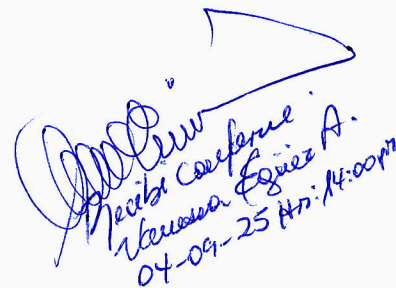 Recibi conforme.
Vanessa Eguez A.
04-09-25 Hr: 14:00 pm